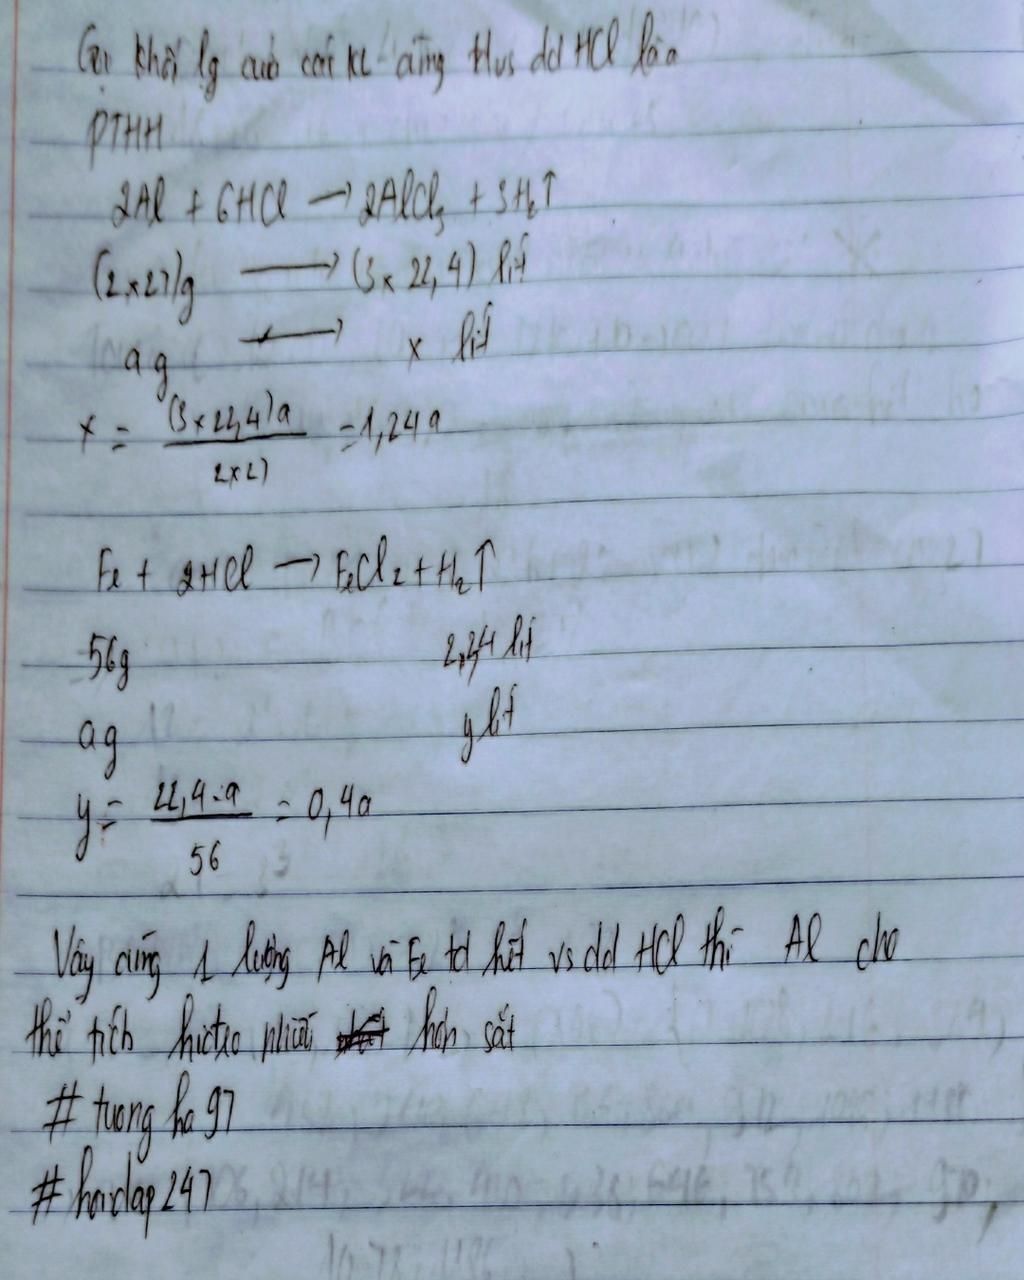 Gọi khối lg của các KL cùng t/d vs dd HCl là a
PTHH
2Al + 6HCl → 2AlCl3 + 3H2↑
(2x27)g → (3x22,4) lít
a g → x lít
x = (3x22,4)a / 2x27 = 1,24a
Fe + 2HCl → FeCl2 + H2↑
56g 22,4 lít
a g y lít
y = 22,4.a / 56 = 0,4a
Vậy cùng 1 lượng Al và Fe td hết vs dd HCl thì Al cho
thể tích hiđro nhiều hơn sắt
# tuong ha 97
# hoidap247